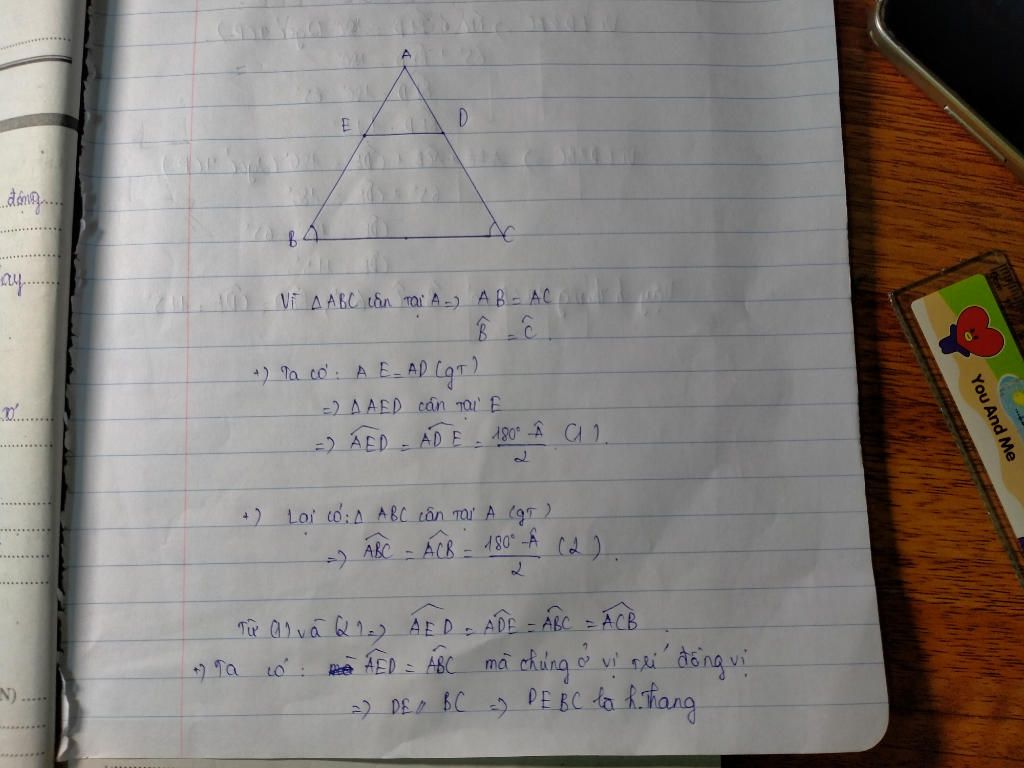 A
E
D
B
C
Vì ΔABC cân tại A => AB = AC
B̂ = Ĉ.
+) Ta có: AE = AD (gT)
=> ΔAED cân tại E
=> AED̂ = ADÊ = (180° - Â)/2 (1).
+) Lại có: Δ ABC cân tại A (gT)
=> ABĈ = ACB̂ = (180° - Â)/2 (2).
Từ (1) và (2) => AED̂ = ADÊ = ABĈ = ACB̂.
+) Ta có: AED̂ = ABĈ mà chúng ở vị trí đồng vị
=> DE // BC => DEBC là h.Thang
động
ay
N)
You And Me